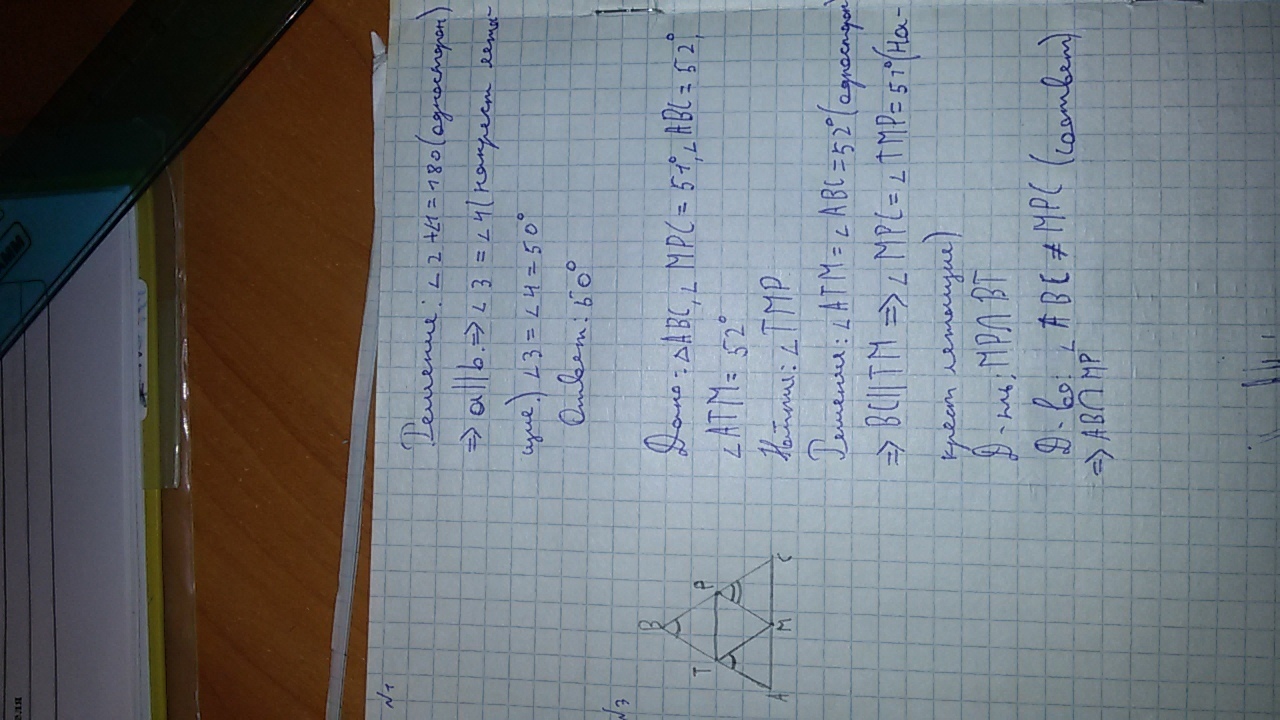 N1
Решение: ∠2+∠1=180 (односторон)
⇒ a||b.⇒∠3 = ∠4 (накрест лежа-
щие.) ∠3 = ∠4 = 50°
Ответ: 50°
N3
B
T
P
A
M
C
Дано: △ABC, ∠MPC = 51°, ∠ABC = 52°,
∠ATM = 52°
Найти: ∠TMP
Решения: ∠ATM = ∠ABC = 52° (односторон)
⇒ BC||TM ⇒ ∠MPC = ∠TMP = 51° (На-
крест лежащие)
Д-ть: MP∩BT
Д-во: ∠ABC ≠ MPC (соответ)
⇒ AB∩MP